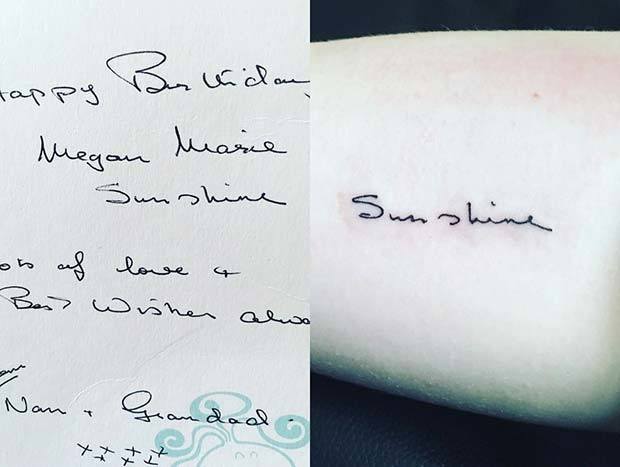 appy Birthday
Megan Marie
Sunshine
ots of love +
Best Wishes alwa
Nan + Grandad.
x x x x
Sunshine